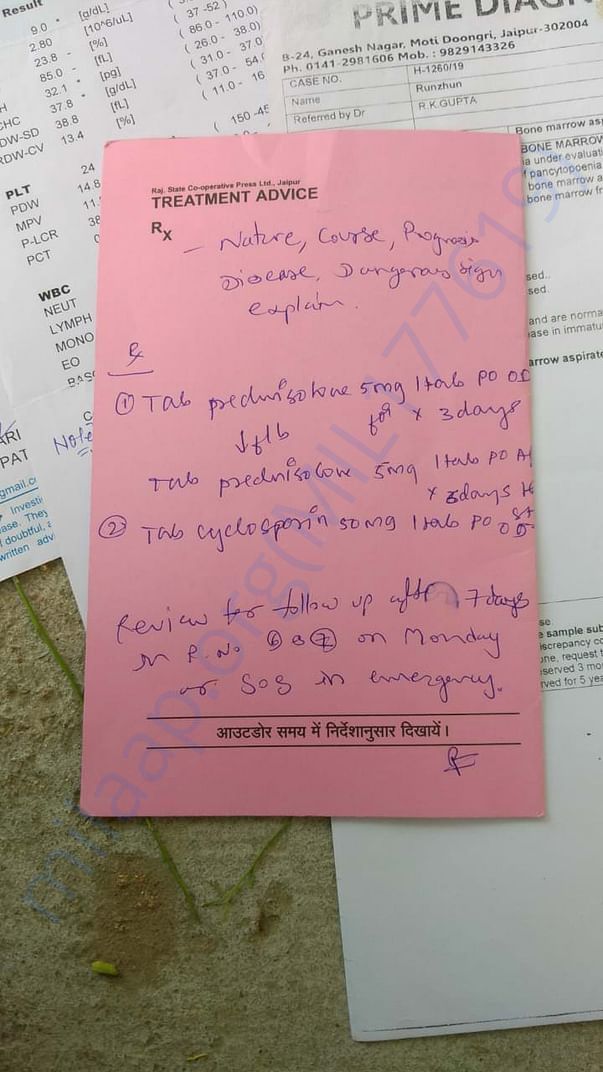 Result
9.0 * [g/dL] ( 37 -52)
2.80 [10^6/uL] ( 86.0 - 110.0)
23.8 - [%] ( 26.0 - 38.0)
85.0 - [fL] ( 31.0 - 37.0
32.1 * [pg] ( 37.0 - 54.0
37.8 * [g/dL] ( 11.0 - 16
DW-SD 38.8 [fL]
RDW-CV 13.4 [%] ( 150 -45
PLT 24
PDW 14.8
MPV 11.
P-LCR 38
PCT 0
WBC
NEUT
LYMPH
MONO
EO
BASO
Note
ARI
PAT
gmail.co
Investi
ase. They
doubtful, a
written adv
PRIME DIAGN
B-24, Ganesh Nagar, Moti Doongri, Jaipur-302004
Ph. 0141-2981606 Mob. : 9829143326
CASE NO. H-1260/19
Name Runzhun
Referred by Dr R.K.GUPTA
Bone marrow asp
BONE MARROW
ia under evaluati
pancytopoenia
bone marrow a
bone marrow fr
sed..
sed.
and are norma
ase in immatu
arrow aspirate
Raj. State Co-operative Press Ltd., Jaipur
TREATMENT ADVICE
Rx
- Nature, Course, Prognosis
Disease, Dangerous sign
explain.
Rx
① Tab prednisolone 5mg 1tab PO OD
↓ f/b for x 3 days
Tab prednisolone 5mg 1tab PO A
x 3days
② Tab cyclosporin 50mg 1tab PO OD
Review for follow up after 7 days
in R.No ⑥ or ⑦ on Monday
or SOS in emergency.
आउटडोर समय में निर्देशानुसार दिखायें।
se
e sample sub
iscrepancy co
one, request t
served 3 mo
rved for 5 yea
milaap.org(MIL177619)